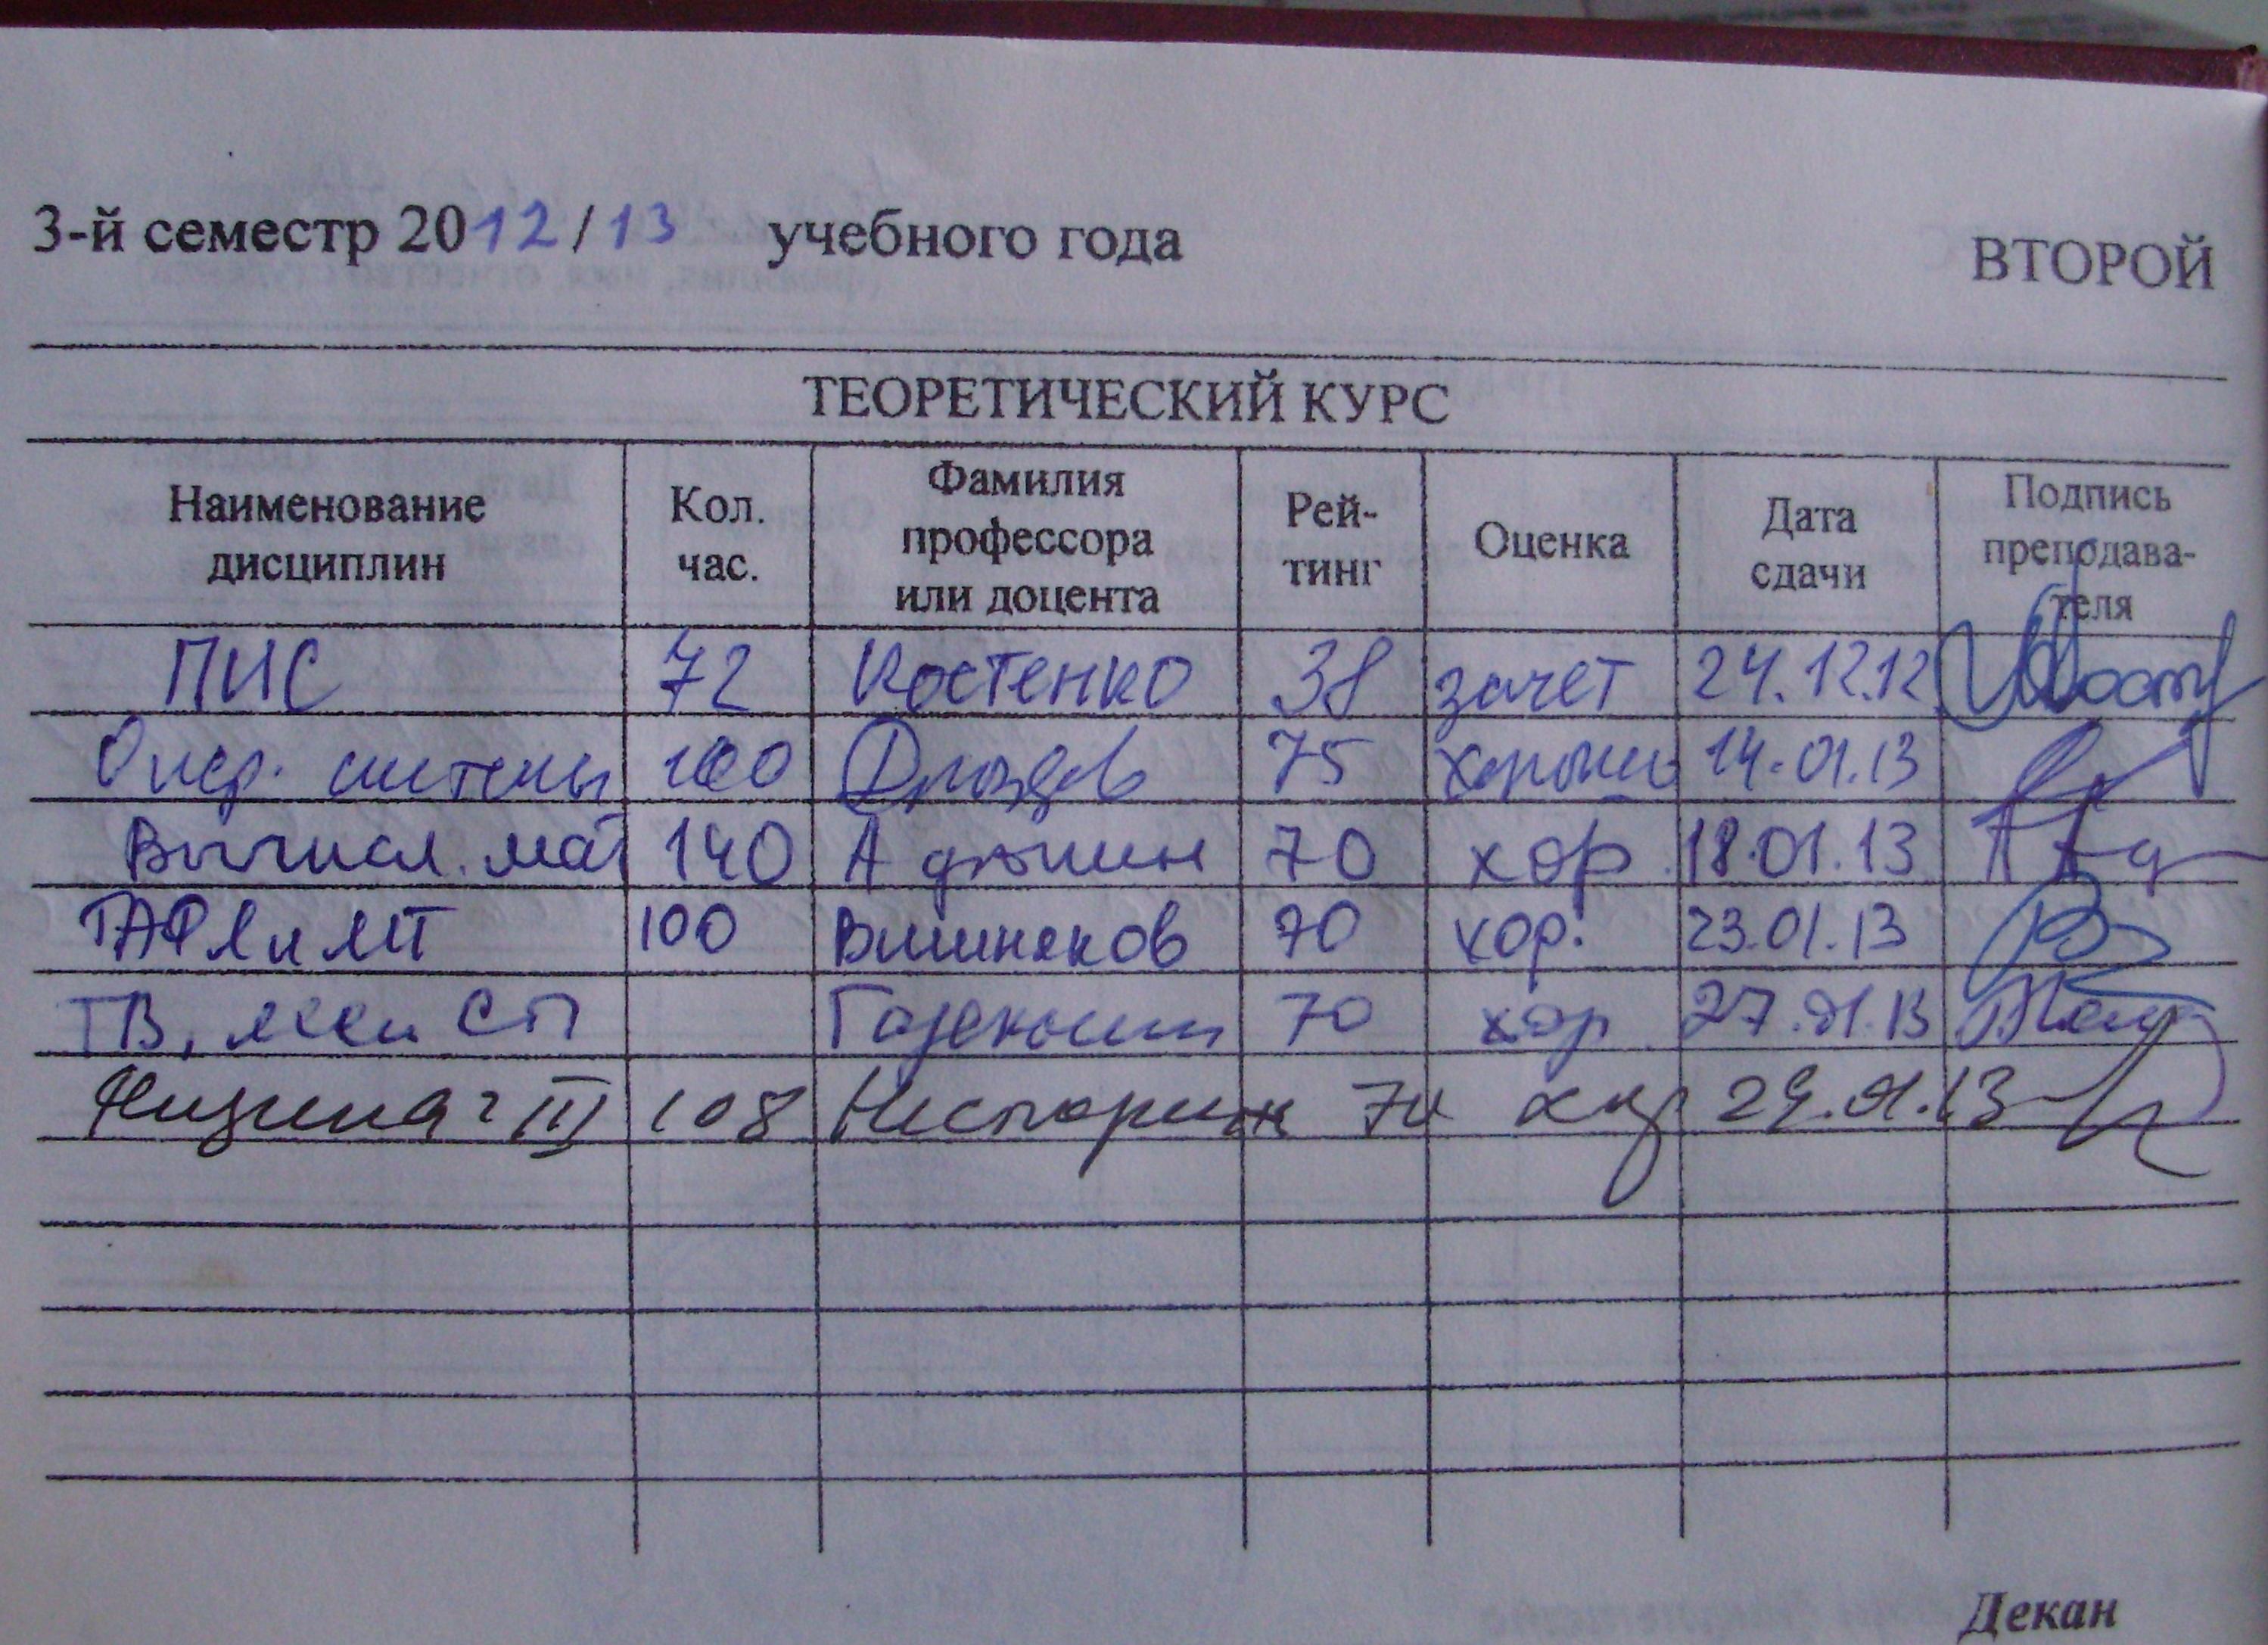 3-й семестр 2012/13 учебного года ВТОРОЙ
ТЕОРЕТИЧЕСКИЙ КУРС
Наименование дисциплин Кол. час. Фамилия профессора или доцента Рей-тинг Оценка Дата сдачи Подпись преподава-теля
ПИС 72 Костенко 38 зачет 24.12.12
Опер. системы 100 Дроздов 75 хорошо 14.01.13
Вычисл. мат 140 Адюшин 70 хор. 18.01.13
ТАФЯ и ЛП 100 Вишняков 70 хор. 23.01.13
ТВ, 70 хор. 27.01.13
Физика III 108 70 хор 29.01.13
Декан